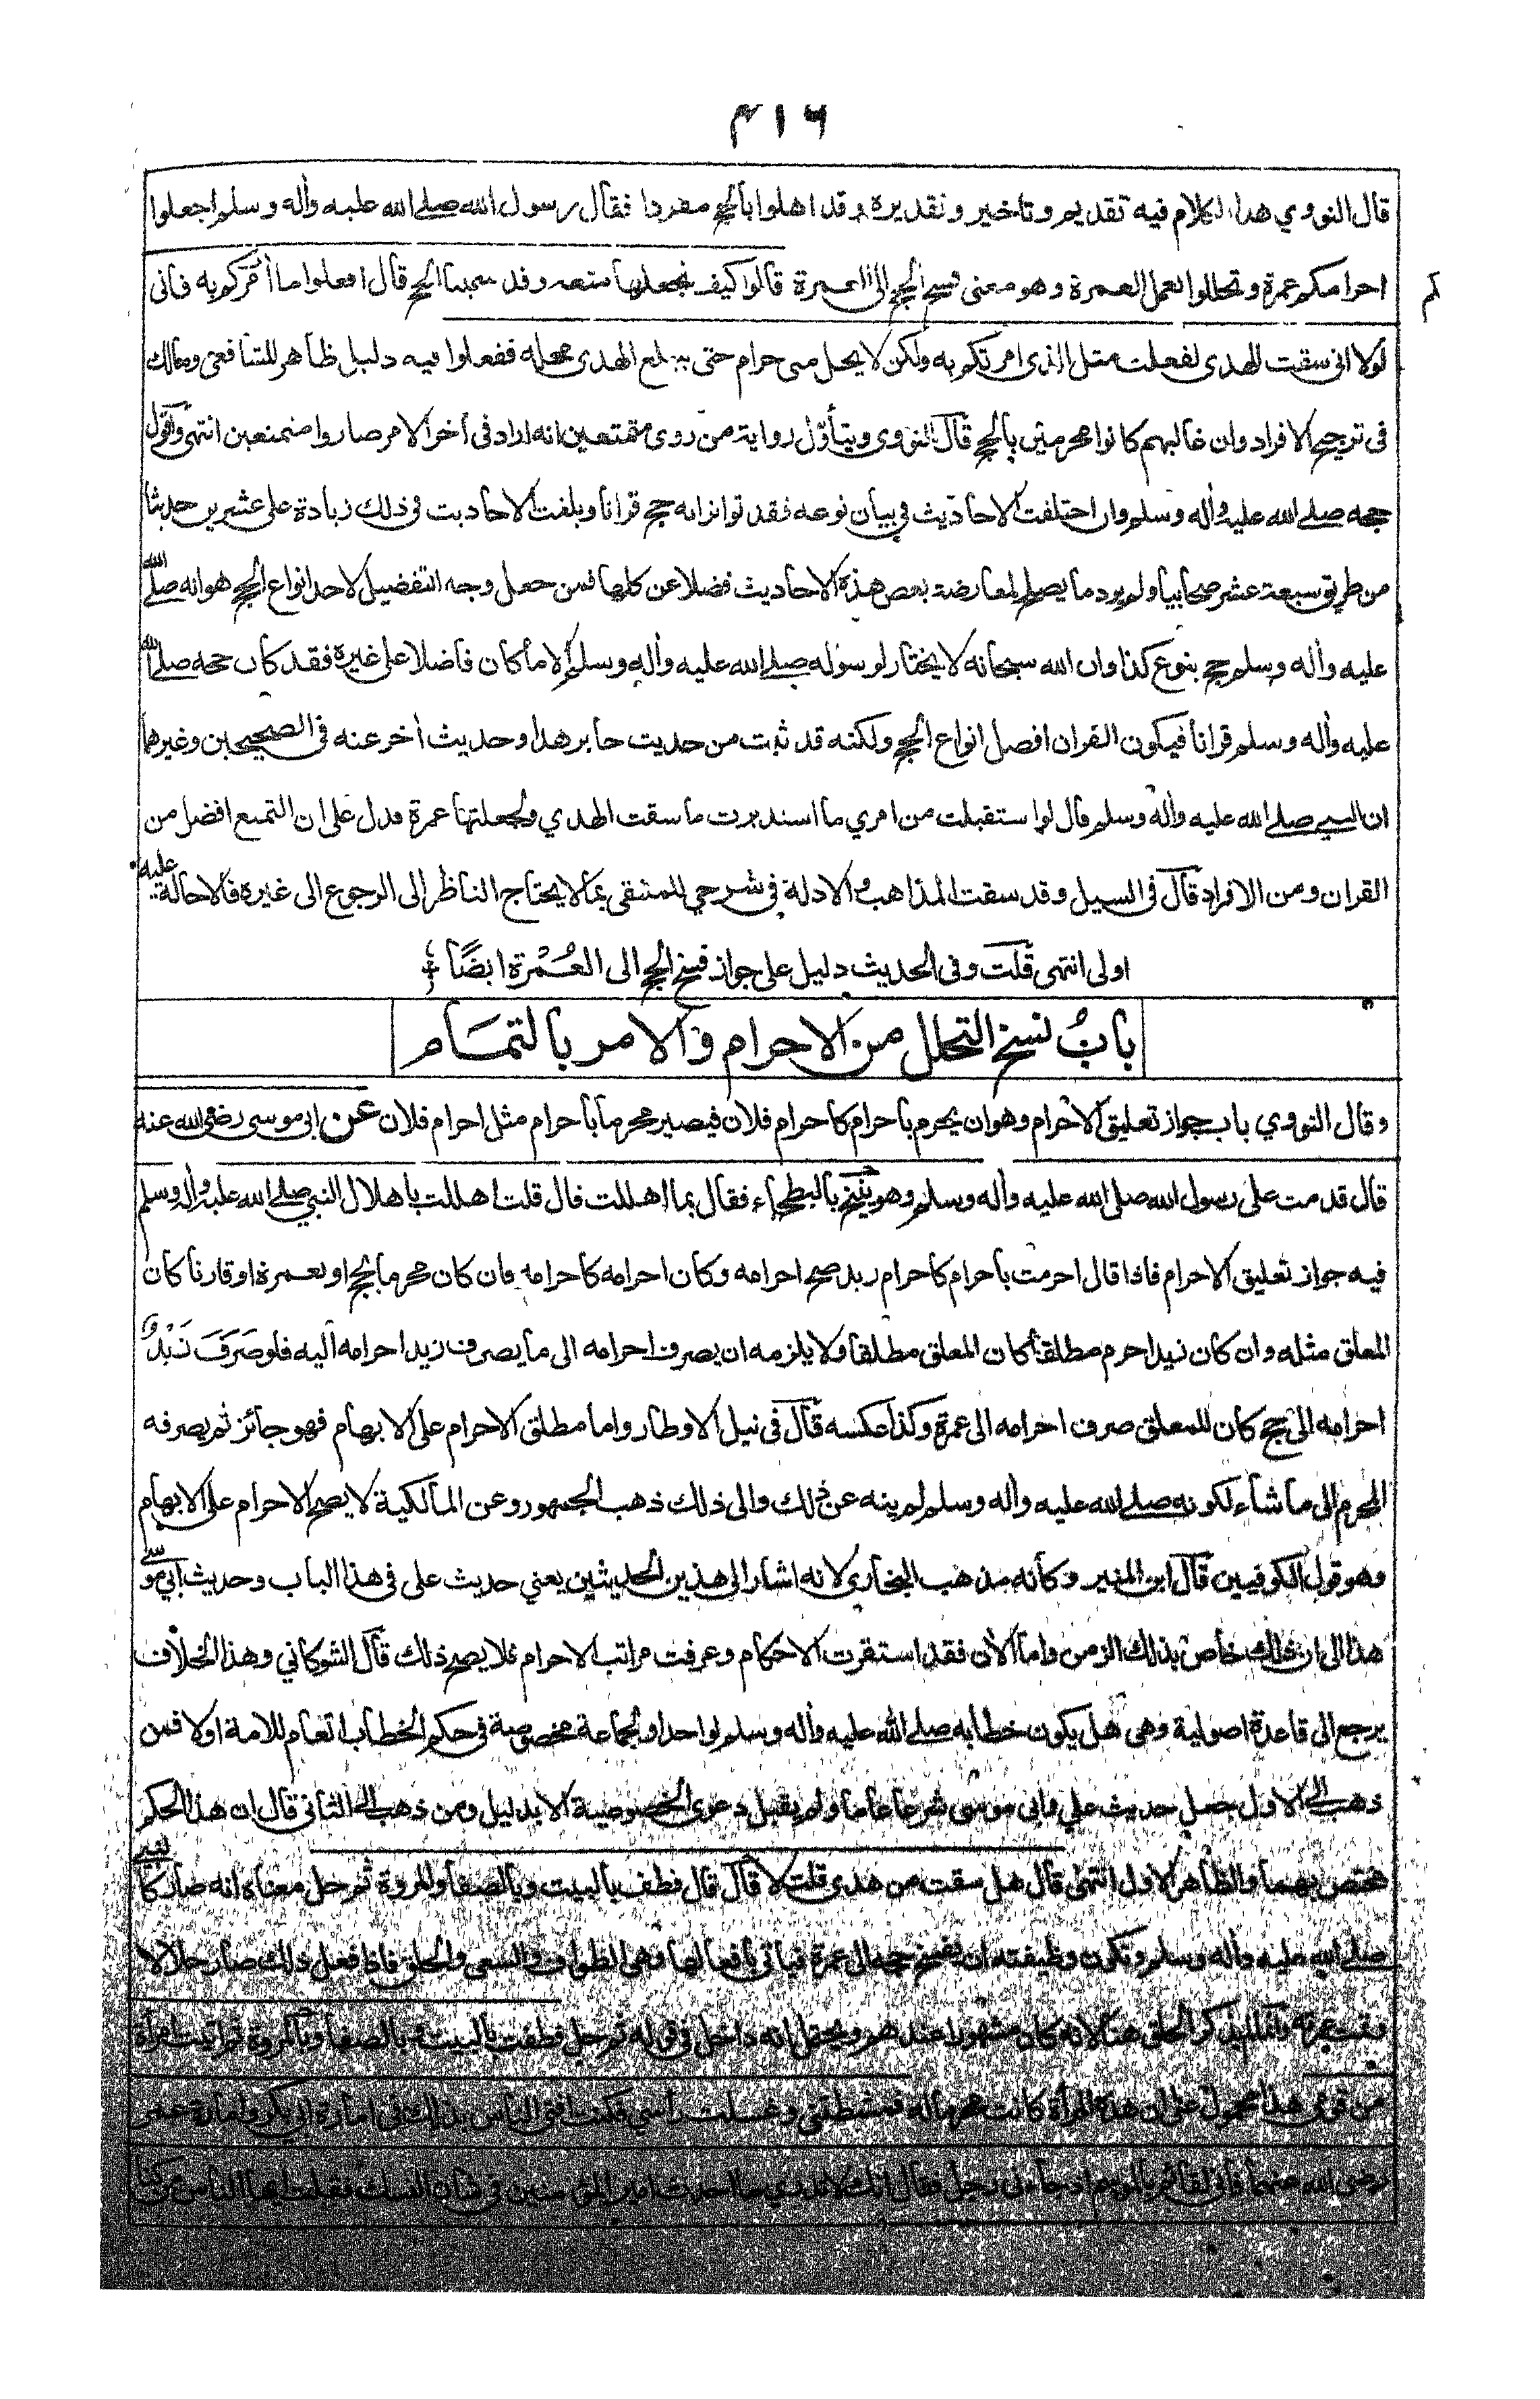 ٤١٦
قال النووي هذا الكلام فيه تقديم وتاخير وتقديره وقد اهلوا بالحج مفردا فقال رسول الله صلى الله عليه وأله وسلم اجعلوا
احرامكم عمرة وتحللوا بعمل العمرة وهو معنى فسخ الحج الى العمرة قالوا كيف نجعلها متعة وقد سمينا الحج قال افعلوا ما أمركم به فانى
لولا انى سقت الهدى لفعلت مثل الذى امرتكم به ولكن لا يحل منى حرام حتى يبلغ الهدى محله ففعلوا فيه دليل ظاهر للشافعى ومالك
فى ترجيح الافراد وان غالبهم كانوا محرمين بالحج قال النووى ويتأوّل رواية من روى متمتعين انه اراد فى أخر الامر صاروا متمتعين انتهى وأقول
حجه صلى الله عليه وأله وسلم وان اختلفت الاحاديث في بيان نوعه فقد تواتر انه حج قرانا وبلغت الاحاديث فى ذلك زيادة على عشرين حديثا
من طريق سبعة عشر صحابيا ولم يرد ما يصلح لمعارضة بعض هذه الاحاديث فضلا عن كلها فمن جعل وجه التفضيل لاحد انواع الحج هو انه صلى الله
عليه وأله وسلم حج بنوع كذا وان الله سبحانه لا يختار لرسوله صلى الله عليه وأله وسلم الا ما كان فاضلا على غيره فقد كان حجه صلى الله
عليه وأله وسلم قرانا فيكون القران افضل انواع الحج ولكنه قد ثبت من حديث جابر هذا وحديث أخر عنه فى الصحيحين وغيرهما
ان النبي صلى الله عليه وأله وسلم قال لو استقبلت من امري ما استدبرت ما سقت الهدي ولجعلتها عمرة فدل على ان التمتع افضل من
القران ومن الافراد قال فى السيل وقد سقت المذاهب والادلة في شرحي للمنتقى بما لا يحتاج الناظر الى الرجوع الى غيره فالاحالة عليه
اولى انتهى قلت وفى الحديث دليل على جواز فسخ الحج الى العُمْرة ايضًا
بابُ نسخ التحلل من الاحرام والامر بالتمام
وقال النووي باب جواز تعليق الاحرام وهو ان يحرم باحرام كاحرام فلان فيصير محرما باحرام مثل احرام فلان عن ابى موسى رضى الله عنه
قال قدمت على رسول الله صلى الله عليه وأله وسلم وهو منيخ بالبطحاء فقال بما اهللت قال قلت اهللت باهلال النبي صلى الله عليه وأله وسلم
فيه جواز تعليق الاحرام فاذا قال احرمت باحرام كاحرام زيد صح احرامه وكان احرامه كاحرامه فان كان محرما بحج او بعمرة او قارنا كان
المعلق مثله وان كان زيد احرم مطلقا كان المعلق مطلقا ولا يلزمه ان يصرف احرامه الى ما يصرف زيد احرامه اليه فلو صَرَفَ زَيْدٌ
احرامه الى حج كان للمعلق صرف احرامه الى عمرة وكذا عكسه قال فى نيل الاوطار واما مطلق الاحرام على الابهام فهو جائز ثم يصرفه
المحرم الى ما شاء لكونه صلى الله عليه وأله وسلم لم ينه عن ذلك والى ذلك ذهب الجمهور وعن المالكية لا يصح الاحرام على الابهام
وهو قول الكوفيين قال ابن المنير وكأنه مذهب البخارى لانه اشار الى هذين الحديثين يعني حديث على فى هذا الباب وحديث ابي موسى
هذا الى ان ذلك خاص بذلك الزمن واما الأن فقد استقرت الاحكام وعرفت مراتب الاحرام فلا يصح ذلك قال الشوكاني وهذا الخلاف
يرجع الى قاعدة اصولية وهى هل يكون خطابه صلى الله عليه وأله وسلم لواحد او لجماعة مخصوصة فى حكم الخطاب العام للامة او لا فمن
ذهب الى الاول جعل حديث علي وابى موسى شرعا عاما ولم يقبل دعوى الخصوصية الا بدليل ومن ذهب الى الثانى قال ان هذا الحكم
مختص بهما والظاهر الاول انتهى قال هل سقت من هدى قلت لا قال قال فطف بالبيت وبالصفا والمروة ثم حل معناه انه صار كالنبي
صلى الله عليه وأله وسلم وتكون وظيفته ان يفسخ حجه الى عمرة فيأتى بافعالها وهى الطواف والسعى والحلق فاذا فعل ذلك صار حلالا
وتمت عمرته وانما لم يذكر الحلق هنا لانه كان مشهورا عندهم ويحتمل انه داخل فى قوله ثم حل فطفت بالبيت وبالصفا وبالمروة ثم اتيت امرأة
من قومى هذا محمول على ان هذه المرأة كانت محرما له فمشطتنى وغسلت رأسي فكنت افتى الناس بذلك فى امارة ابى بكر وامارة عمر
رضى الله عنهما فانى لقائم بالموسم اذ جاءنى رجل فقال انك لا تدرى ما احدث امير المؤمنين فى شان النسك فقلت ايها الناس من كنا